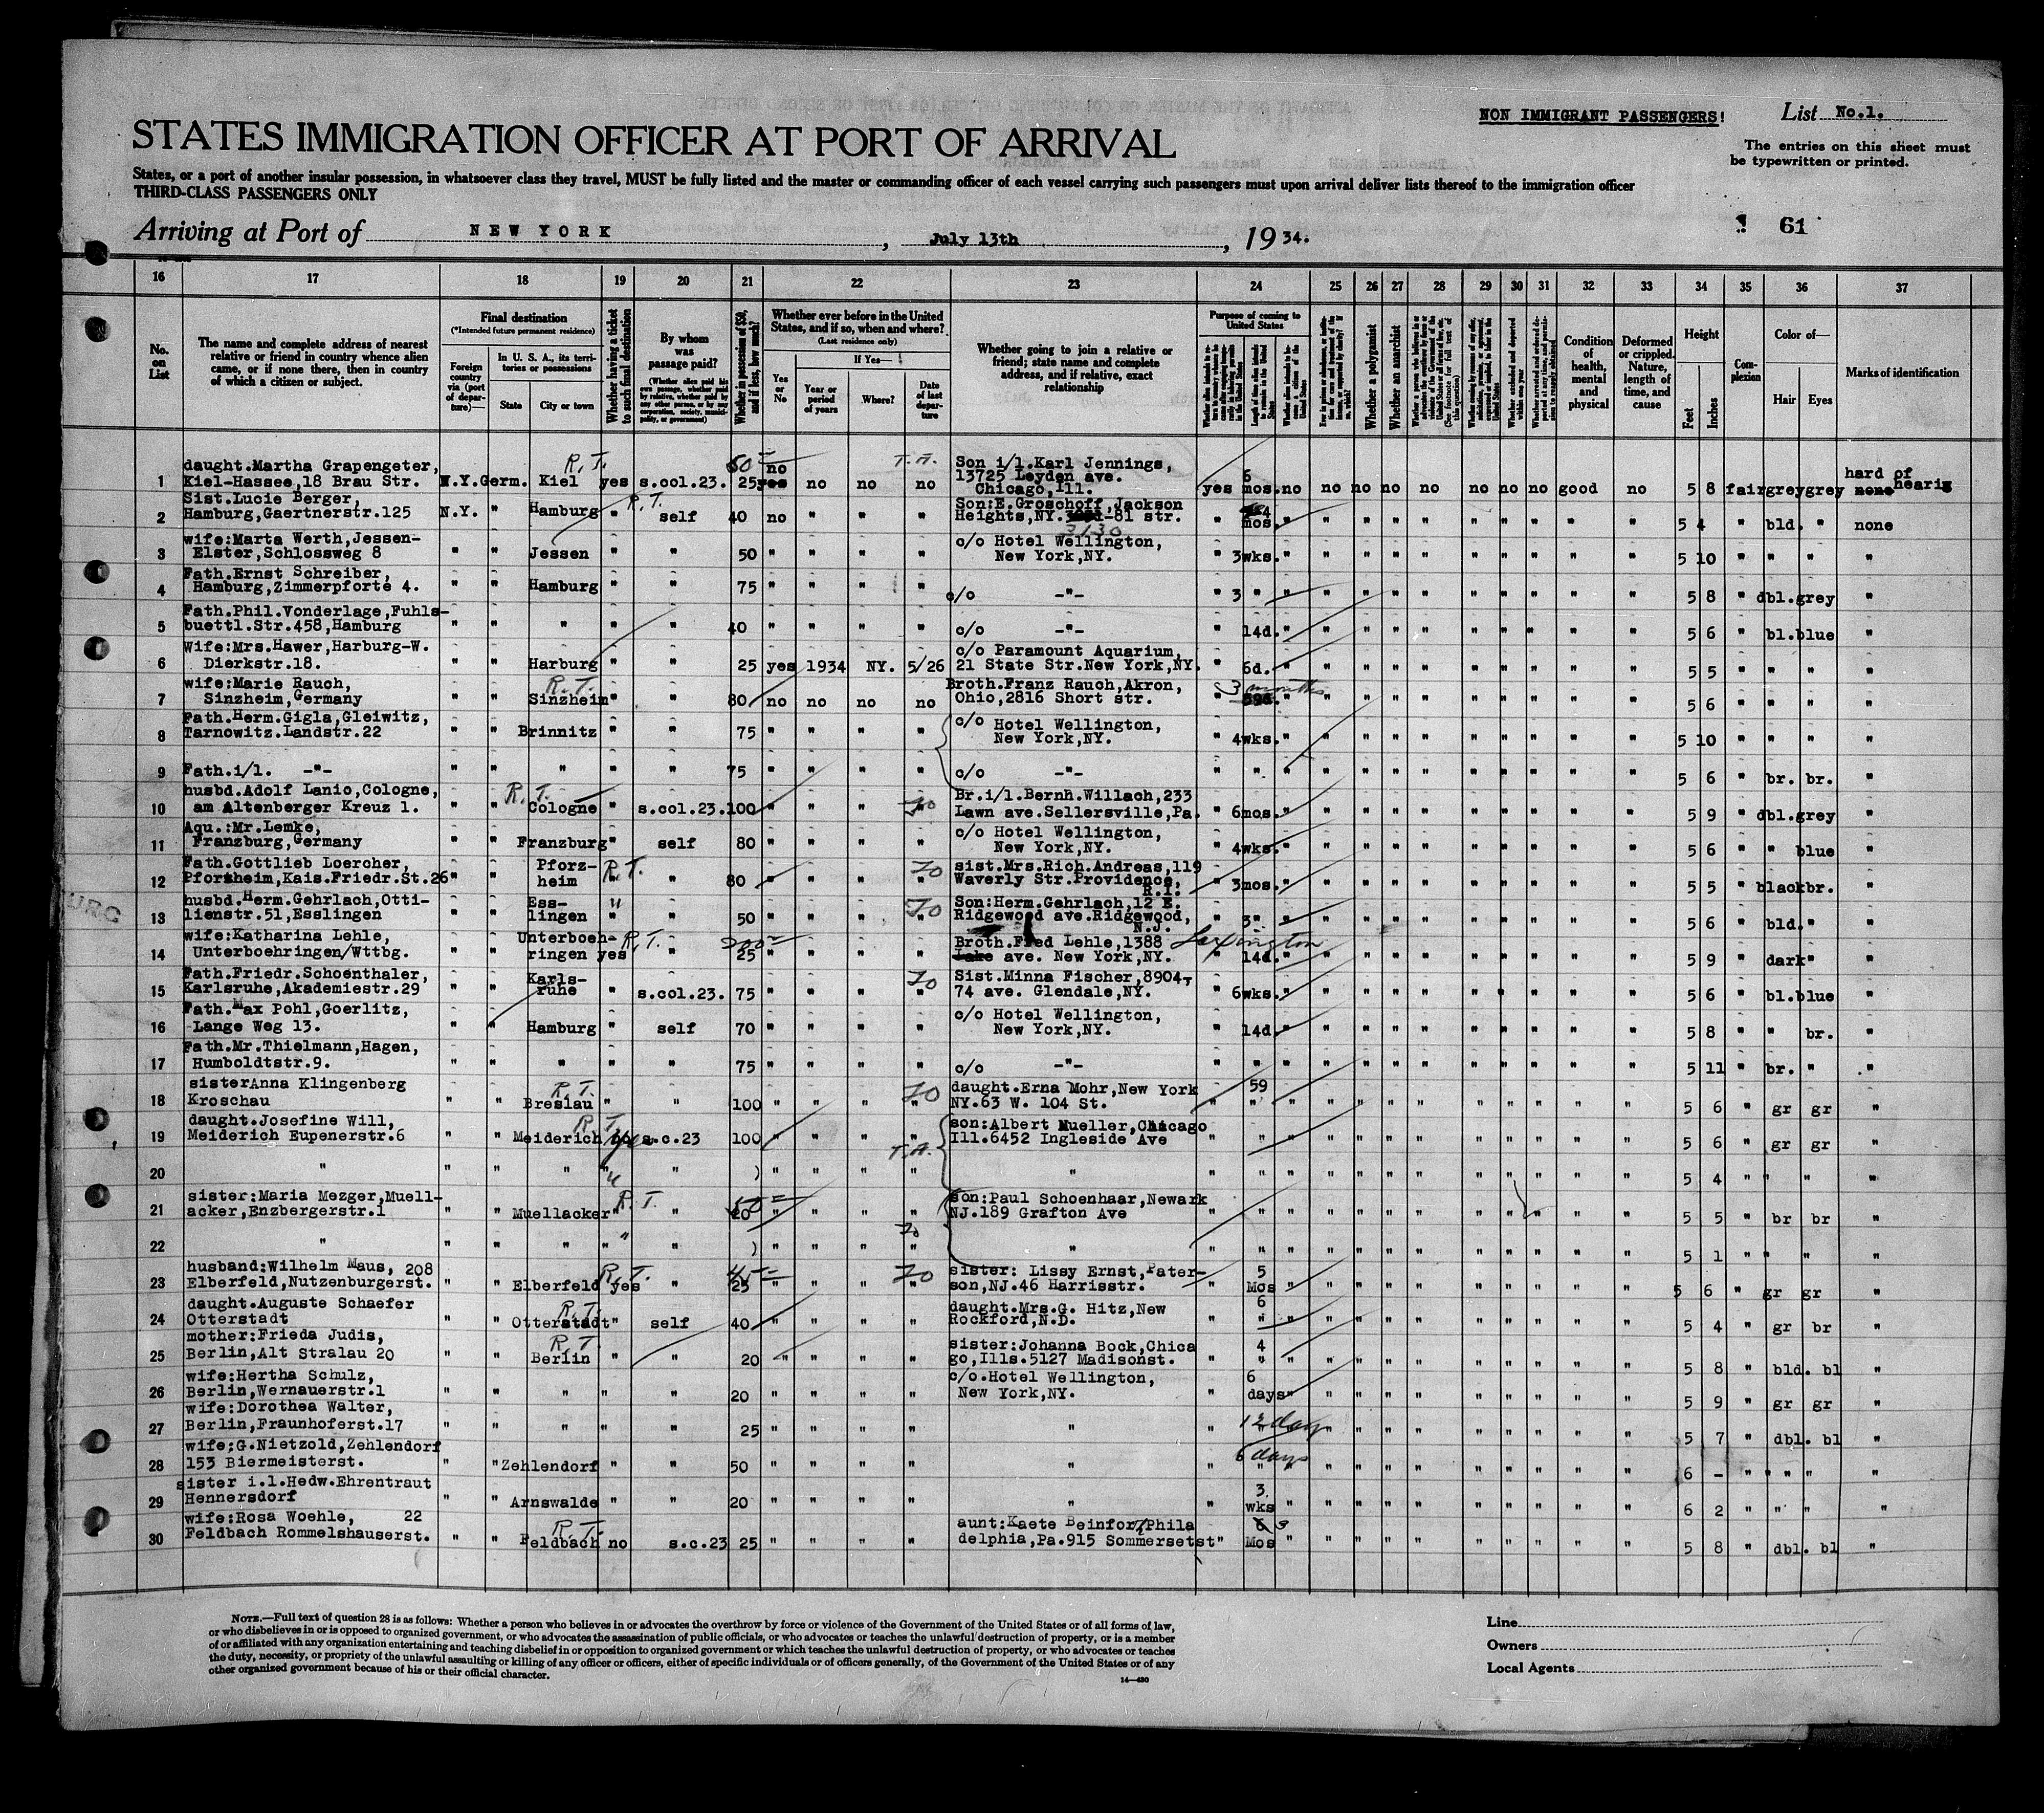 NON IMMIGRANT PASSENGERS!
List No.1.
STATES IMMIGRATION OFFICER AT PORT OF ARRIVAL
The entries on this sheet must
be typewritten or printed.
States, or a port of another insular possession, in whatsoever class they travel, MUST be fully listed and the master or commanding officer of each vessel carrying such passengers must upon arrival deliver lists thereof to the immigration officer
THIRD-CLASS PASSENGERS ONLY
Arriving at Port of NEW YORK, July 13th, 1934.
61
16 17 18 19 20 21 22 23 24 25 26 27 28 29 30 31 32 33 34 35 36 37
No. on List
The name and complete address of nearest
relative or friend in country whence alien
came, or if none there, then in country
of which a citizen or subject.
Final destination
(*Intended future permanent residence)
Foreign country via (port of departure)—
In U. S. A., its territories or possessions
State
City or town
Whether having a ticket to such final destination
By whom was passage paid?
Whether in possession of $50, and if less, how much?
Whether ever before in the United
States, and if so, when and where?
(Last residence only)
Yes or No
If Yes—
Year or period of years
Where?
Date of last departure
Whether going to join a relative or
friend; state name and complete
address, and if relative, exact
relationship
Purpose of coming to United States
Whether a polygamist
Whether an anarchist
Condition of health, mental and physical
Deformed or crippled. Nature, length of time, and cause
Height
Feet
Inches
Complexion
Color of—
Hair
Eyes
Marks of identification
daught.Martha Grapengeter, R.T. 50 no T.A. Son i/l.Karl Jennings,
1 Kiel-Hassee,18 Brau Str. N.Y. Germ. Kiel yes s.col.23. 25 yes no no no 13725 Leyden ave. Chicago,Ill. yes 6 mos. no no no no no no no no good no 5 8 fair grey grey none hard of hearig
Sist.Lucie Berger, R.T. Son:E.Groschoff,Jackson
2 Hamburg,Gaertnerstr.125 N.Y. " Hamburg " self 40 no " " " Heights,NY. -81 str. 3130 " 4 mos. " " " " " " " " " " 5 4 " bld. " none
wife:Marta Werth,Jessen- c/o Hotel Wellington,
3 Elster,Schlossweg 8 " " Jessen " " 50 " " " " New York,NY. " 3wks. " " " " " " " " " " 5 10 " " " "
Fath.Ernst Schreiber,
4 Hamburg,Zimmerpforte 4. " " Hamburg " " 75 " " " " c/o -"- " 3 " " " " " " " " " " " 5 8 " dbl. grey "
Fath.Phil.Vonderlage,Fuhls-
5 buettl.Str.458,Hamburg " " " " " 40 " " " " c/o -"- " 14d. " " " " " " " " " " 5 6 " bl. blue "
Wife:Mrs.Hawer,Harburg-W. c/o Paramount Aquarium,
6 Dierkstr.18. " " Harburg " " 25 yes 1934 NY. 5/26 21 State Str.New York,NY. " 6d. " " " " " " " " " " 5 5 " " " "
wife:Marie Rauch, R.T. Broth.Franz Rauch,Akron, 3 months
7 Sinzheim,Germany " " Sinzheim " " 80 no no no no Ohio,2816 Short str. " " " " " " " " " " " 5 6 " " " "
Fath.Herm.Gigla,Gleiwitz, c/o Hotel Wellington,
8 Tarnowitz.Landstr.22 " " Brinnitz " " 75 " " " " New York,NY. " 4wks. " " " " " " " " " " 5 10 " " " "
9 Fath.i/l. -"- " " " " " 75 " " " " c/o -"- " " " " " " " " " " " " 5 6 " br. br. "
husbd.Adolf Lanio,Cologne, R.T. Br.i/l.Bernh.Willach,233
10 am Altenberger Kreuz 1. " " Cologne " s.col.23. 100 " " " Lawn ave.Sellersville,Pa. " 6mos. " " " " " " " " " " 5 9 " dbl. grey "
Aqu.:Mr.Lemke, c/o Hotel Wellington,
11 Franzburg,Germany " " Franzburg " self 80 " " " " New York,NY. " 4wks. " " " " " " " " " " 5 6 " " blue "
Fath.Gottlieb Loercher, Pforz- sist.Mrs.Rich.Andreas,119
12 Pforzheim,Kais.Friedr.St.26 " " heim R.T. " 80 " " " " Waverly Str.Providence, R.I. " 3mos. " " " " " " " " " " 5 5 " black br. "
husbd.Herm.Gehrlach,Otti- Ess- Son:Herm.Gehrlach,12 E.
13 lienstr.51,Esslingen " " lingen " " 50 " " " " Ridgewood ave.Ridgewood, N.J. " 3" " " " " " " " " " " 5 6 " bld. " "
wife:Katharina Lehle, Unterboeh- R.T. 200 Broth.Fred Lehle,1388 Lexington
14 Unterboehringen/Wttbg. " " ringen yes " 25 " " " " Lake ave. New York,NY. " 14d. " " " " " " " " " " 5 9 " dark " "
Fath.Friedr.Schoenthaler, Karls- Sist.Minna Fischer,8904-
15 Karlsruhe,Akademiestr.29 " " ruhe " s.col.23. 75 " " " " 74 ave. Glendale,NY. " 6wks. " " " " " " " " " " 5 6 " bl. blue "
Fath.Max Pohl,Goerlitz, c/o Hotel Wellington,
16 Lange Weg 13. " " Hamburg " self 70 " " " " New York,NY. " 14d. " " " " " " " " " " 5 8 " " br. "
Fath.Mr.Thielmann,Hagen,
17 Humboldtstr.9. " " " " " 75 " " " " c/o -"- " " " " " " " " " " " " 5 11 " br. " "
sisterAnna Klingenberg R.T. daught.Erna Mohr,New York 59
18 Kroschau " " Breslau " " 100 " " " " NY.63 W. 104 St. " " " " " " " " " " " " 5 6 " gr gr "
daught.Josefine Will, R.T. son:Albert Mueller,Chicago
19 Meiderich Eupenerstr.6 " " Meiderich yes s.c.23 100 " " " " T.A. Ill.6452 Ingleside Ave " " " " " " " " " " " " 5 6 " gr gr "
20 " " " " " " ) " " " " " " " " " " " " " " " " " " 5 4 " " " "
sister:Maria Mezger,Muell- R.T. 50 son:Paul Schoenhaar,Newark
21 acker,Enzbergerstr.1 " " Muellacker " " 20 " " " " NJ.189 Grafton Ave " " " " " " " " " " " " 5 5 " br br "
22 " " " " " " ) " " " " " " " " " " " " " " " " " " 5 1 " " " "
husband:Wilhelm Maus, 208 R.T. 45 sister: Lissy Ernst,Pater- 5
23 Elberfeld,Nutzenburgerst. " " Elberfeld yes " 25 " " " " son,NJ.46 Harrisstr. " Mos " " " " " " " " " " 5 6 " gr gr "
daught.Auguste Schaefer R.T. daught.Mrs.G. Hitz,New 6
24 Otterstadt " " Otterstadt " self 40 " " " " Rockford,N.D. " " " " " " " " " " " " 5 4 " gr br "
mother:Frieda Judis, R.T. sister:Johanna Bock,Chica 4
25 Berlin,Alt Stralau 20 " " Berlin " " 20 " " " " go,Ills.5127 Madisonst. " " " " " " " " " " " " 5 8 " bld. bl "
wife:Hertha Schulz, c/o.Hotel Wellington, 6
26 Berlin,Wernauerstr.1 " " " " " 20 " " " " New York,NY. " days " " " " " " " " " " 5 9 " gr gr "
wife:Dorothea Walter, 12 days
27 Berlin,Fraunhoferst.17 " " " " " 25 " " " " " " " " " " " " " " " " " 5 7 " dbl. bl "
wife;G.Nietzold,Zehlendorf 6 days
28 153 Biermeisterst. " " Zehlendorf " " 50 " " " " " " " " " " " " " " " " " 6 - " " " "
sister i.l.Hedw.Ehrentraut 3.
29 Hennersdorf " " Arnswalde " " 20 " " " " " " wks " " " " " " " " " " 6 2 " " " "
wife:Rosa Woehle, 22 R.T. aunt:Kaete Beinforth,Phila 3
30 Feldbach Rommelshauserst. " " Feldbach no s.c.23 25 " " " " delphia,Pa.915 Sommersetst " Mos " " " " " " " " " " 5 8 " dbl. bl "
NOTE.—Full text of question 28 is as follows: Whether a person who believes in or advocates the overthrow by force or violence of the Government of the United States or of all forms of law,
or who disbelieves in or is opposed to organized government, or who advocates the assassination of public officials, or who advocates or teaches the unlawful destruction of property, or is a member
of or affiliated with any organization entertaining and teaching disbelief in or opposition to organized government or which teaches the unlawful destruction of property, or who advocates or teaches
the duty, necessity, or propriety of the unlawful assaulting or killing of any officer or officers, either of specific individuals or of officers generally, of the Government of the United States or of any
other organized government because of his or their official character.
14—430
Line
Owners
Local Agents